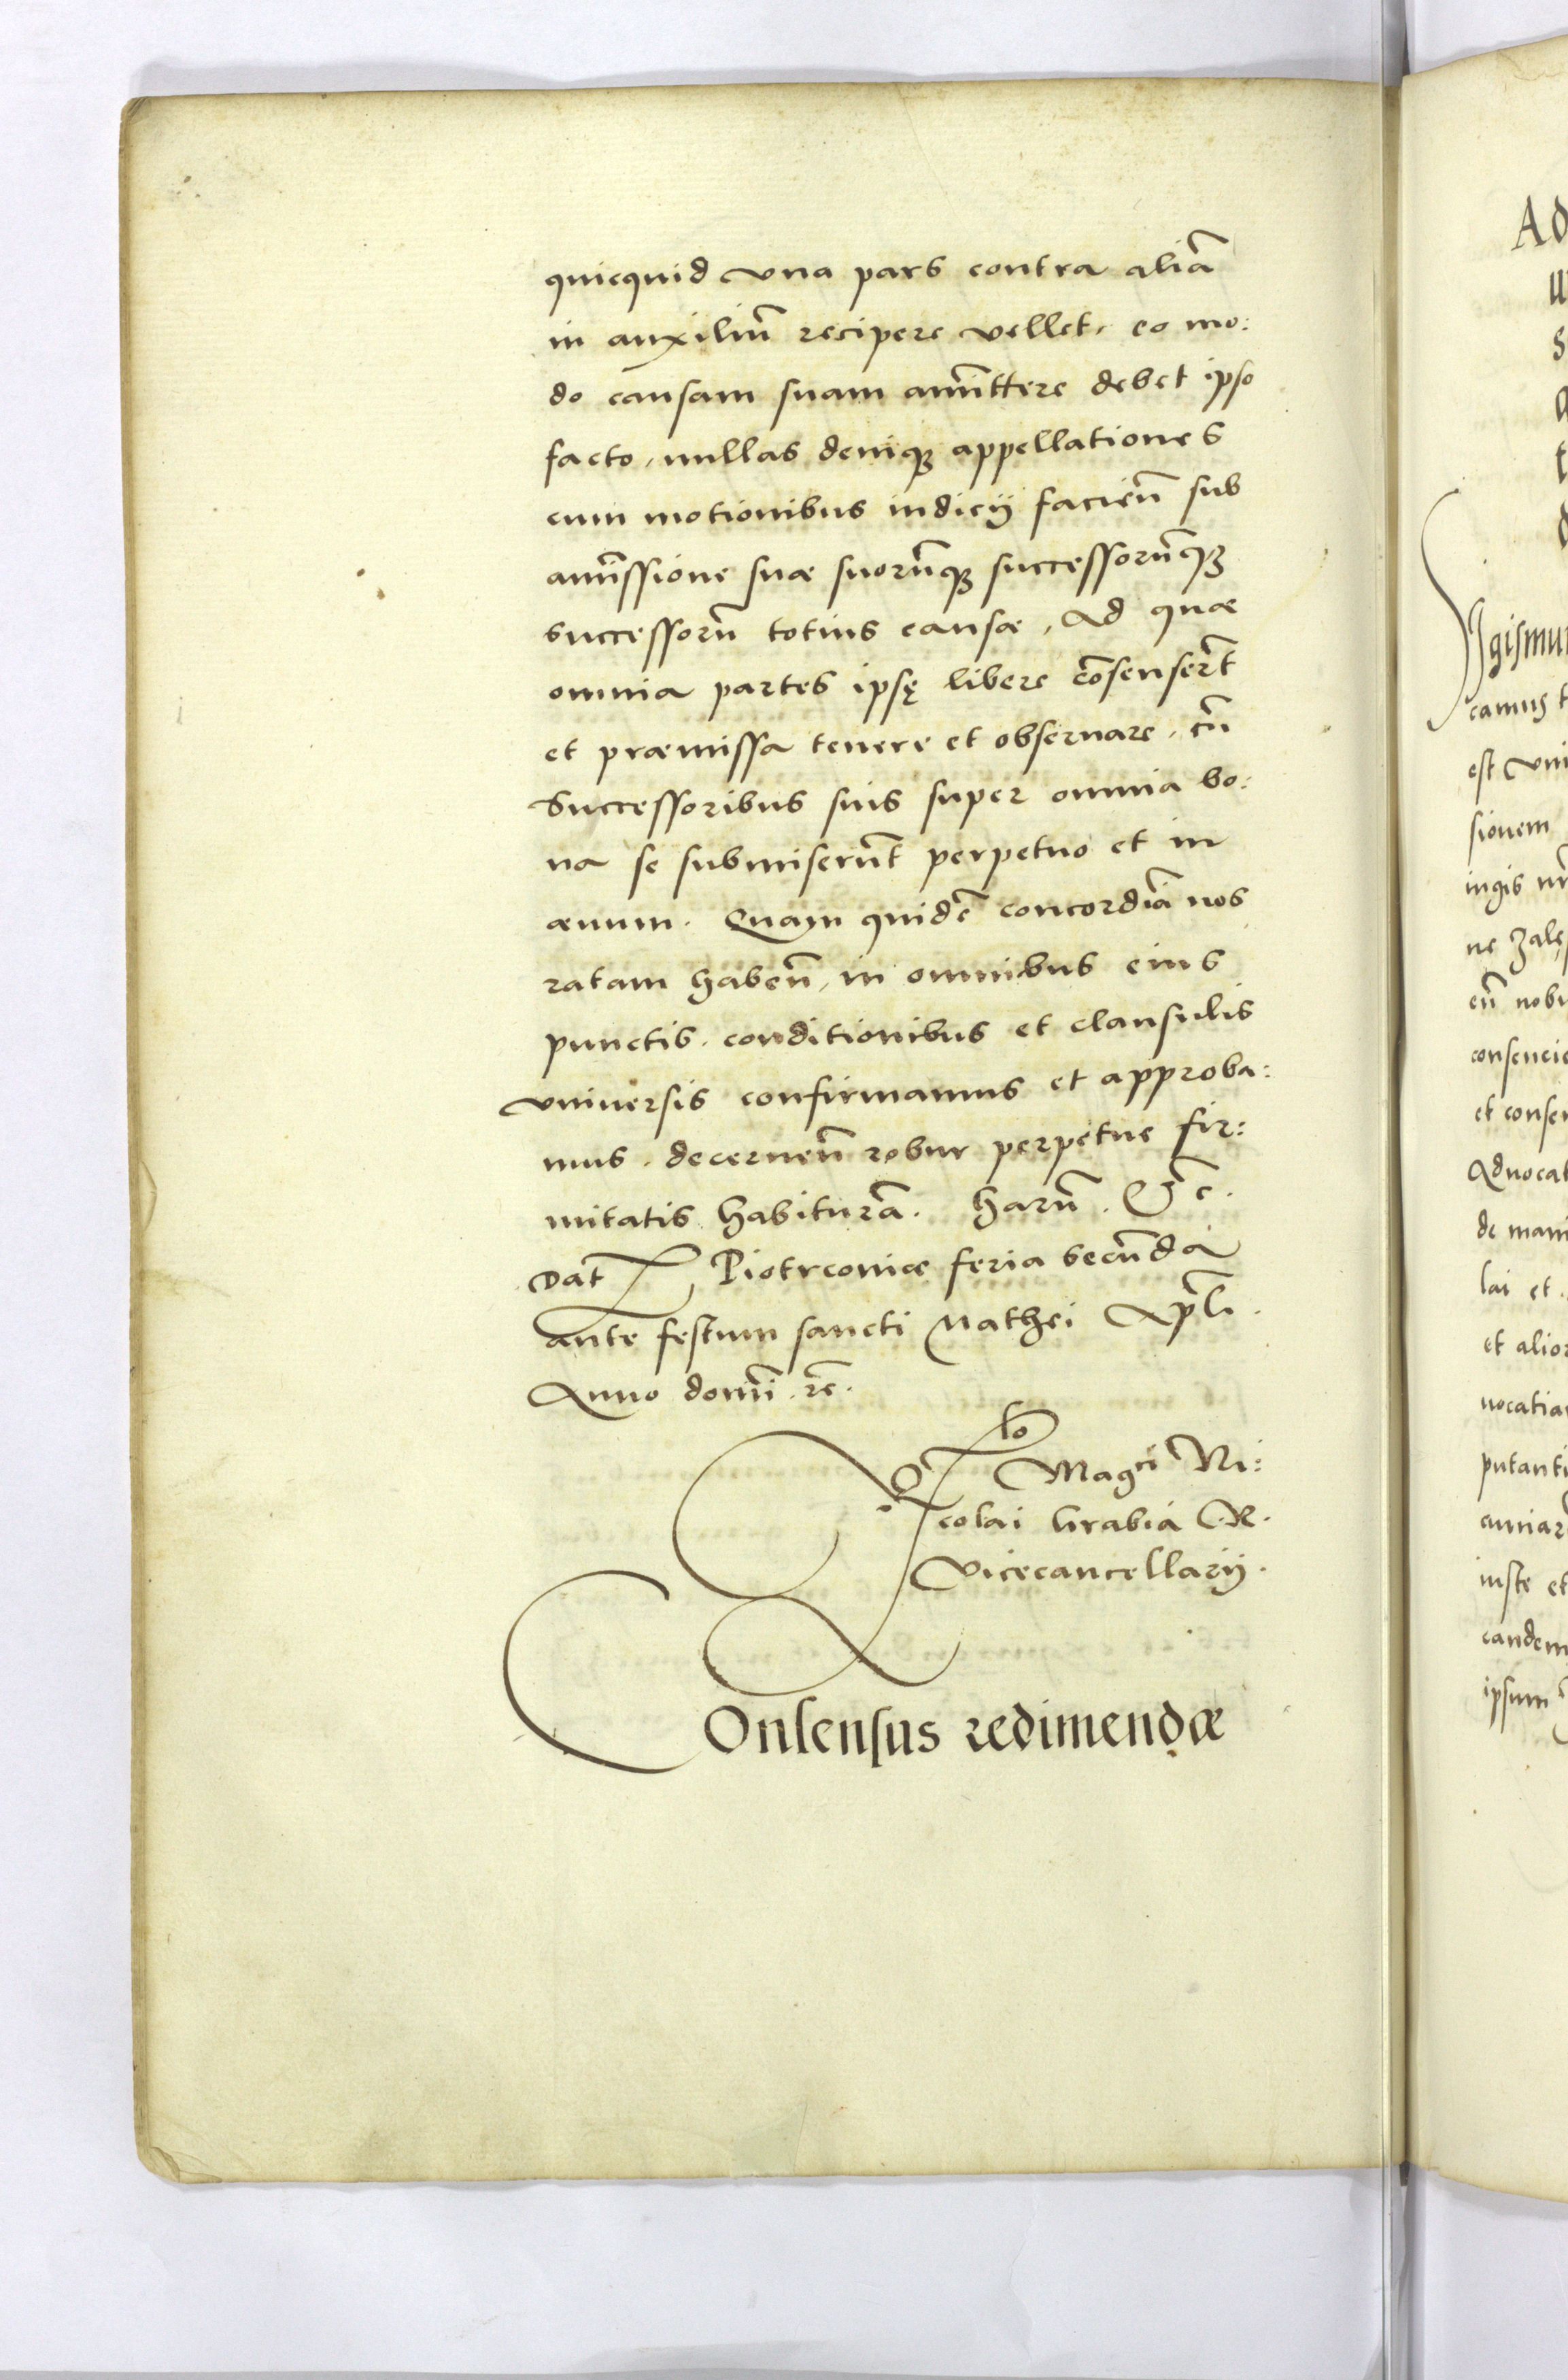 quicquid vna pars contra aliā
in auxiliū recipere vellet, eo mo:
do causam suam amīttere debet ipso
facto, nullas deniqꝫ appellationes
cum motionibus iudicij facieñ sub
amīssione suæ suorūqꝫ successorūqꝫ
successorū totius causæ, Ad quæ
omnia partes ipsę libere cōsenserūt
et præmissa tenere et obseruare, cū
Successoribus suis super omnia bo:
na se submiserūt perpetuo et in
æuum. Quam quidē concordiā nos
ratam habeñ, in omnibus eius
punctis, conditionibus et clausulis
vniuersis confirmamus et approba:
mus, decerneñ robur perpetue fir:
mitatis habiturā. Harū. &c̄.
Dat̄ Piotrcouiæ feria secūda
ante festum sancti Mathei Ap̄li.
Anno domī. rc̄.
Rlo Magci Ni:
colai Grabia .R.
Vicecancellarij.
Consensus redimendæ
Ad
camus
est vni
sionem
ne
consencie
et consen
Aduocat
de mani
lai et
et alior
uocatia
putanti
iuste et
eandem
ipsum